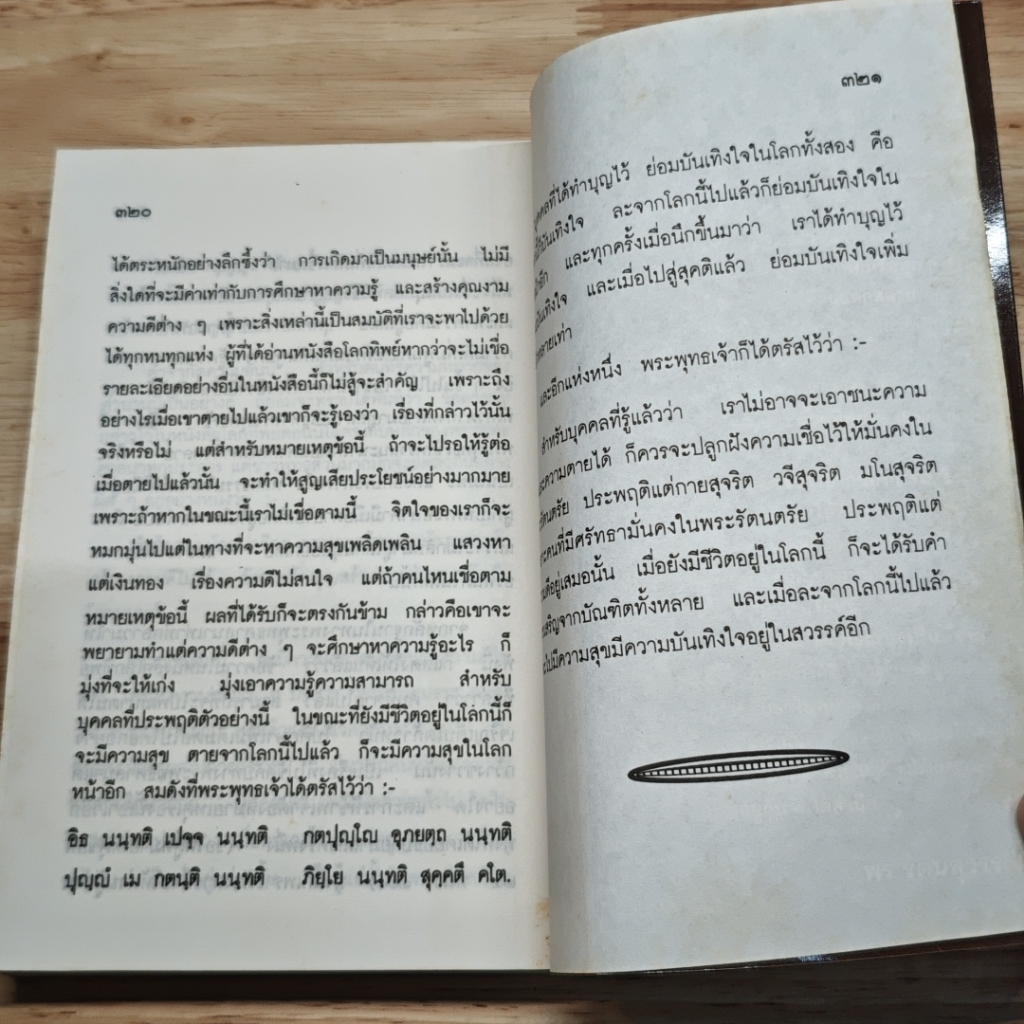 ๓๒๐
ได้ตระหนักอย่างลึกซึ้งว่า การเกิดมาเป็นมนุษย์นั้น ไม่มี
สิ่งใดที่จะมีค่าเท่ากับการศึกษาหาความรู้ และสร้างคุณงาม
ความดีต่าง ๆ เพราะสิ่งเหล่านี้เป็นสมบัติที่เราจะพาไปด้วย
ได้ทุกหนทุกแห่ง ผู้ที่ได้อ่านหนังสือโลกทิพย์หากว่าจะไม่เชื่อ
รายละเอียดอย่างอื่นในหนังสือนี้ก็ไม่สู้จะสำคัญ เพราะถึง
อย่างไรเมื่อเขาตายไปแล้วเขาก็จะรู้เองว่า เรื่องที่กล่าวไว้นั้น
จริงหรือไม่ แต่สำหรับหมายเหตุข้อนี้ ถ้าจะไปรอให้รู้ต่อ
เมื่อตายไปแล้วนั้น จะทำให้สูญเสียประโยชน์อย่างมากมาย
เพราะถ้าหากในขณะนี้เราไม่เชื่อตามนี้ จิตใจของเราก็จะ
หมกมุ่นไปแต่ในทางที่จะหาความสุขเพลิดเพลิน แสวงหา
แต่เงินทอง เรื่องความดีไม่สนใจ แต่ถ้าคนไหนเชื่อตาม
หมายเหตุข้อนี้ ผลที่ได้รับก็จะตรงกันข้าม กล่าวคือเขาจะ
พยายามทำแต่ความดีต่าง ๆ จะศึกษาหาความรู้อะไร ก็
มุ่งที่จะให้เก่ง มุ่งเอาความรู้ความสามารถ สำหรับ
บุคคลที่ประพฤติตัวอย่างนี้ ในขณะที่ยังมีชีวิตอยู่ในโลกนี้ก็
จะมีความสุข ตายจากโลกนี้ไปแล้ว ก็จะมีความสุขในโลก
หน้าอีก สมดังที่พระพุทธเจ้าได้ตรัสไว้ว่า :-
อิธ นนฺทติ เปจฺจ นนฺทติ กตปุญฺโญ อุภยตฺถ นนฺทติ
ปุญฺญํ เม กตนฺติ นนฺทติ ภิยฺโย นนฺทติ สุคฺคตึ คโต.
๓๒๑
ที่ได้ทำบุญไว้ ย่อมบันเทิงใจในโลกทั้งสอง คือ
ละจากโลกนี้ไปแล้วก็ย่อมบันเทิงใจใน
และทุกครั้งเมื่อนึกขึ้นมาว่า เราได้ทำบุญไว้
และเมื่อไปสู่สุคติแล้ว ย่อมบันเทิงใจเพิ่ม
และอีกแห่งหนึ่ง พระพุทธเจ้าก็ได้ตรัสไว้ว่า :-
สำหรับบุคคลที่รู้แล้วว่า เราไม่อาจจะเอาชนะความ
ความตายได้ ก็ควรจะปลูกฝังความเชื่อไว้ให้มั่นคงใน
ประพฤติแต่กายสุจริต วจีสุจริต มโนสุจริต
คนที่มีศรัทธามั่นคงในพระรัตนตรัย ประพฤติแต่
อยู่เสมอนั้น เมื่อยังมีชีวิตอยู่ในโลกนี้ ก็จะได้รับคำ
จากบัณฑิตทั้งหลาย และเมื่อละจากโลกนี้ไปแล้ว
ไปมีความสุขมีความบันเทิงใจอยู่ในสวรรค์อีก